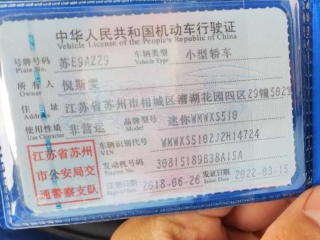 中华人民共和国机动车行驶证
Vehicle License of the People's Republic of China
号牌号码 苏E9AZ29 车辆类型 小型轿车
Plate No. Vehicle Type
所有人 倪斯雯
Owner
住址 江苏省苏州市相城区漕湖花园四区29幢502
Address
使用性质 非营运 品牌型号 迷你WMWXS510
Use Character Model
江苏省苏州
市公安局交
通警察支队
车辆识别代号 WMWXS5102J2H14724
VIN
发动机号码 30815189B38A15A
Engine No.
注册日期 2018-06-26 发证日期 2022-03-15
Register Date Issue Date